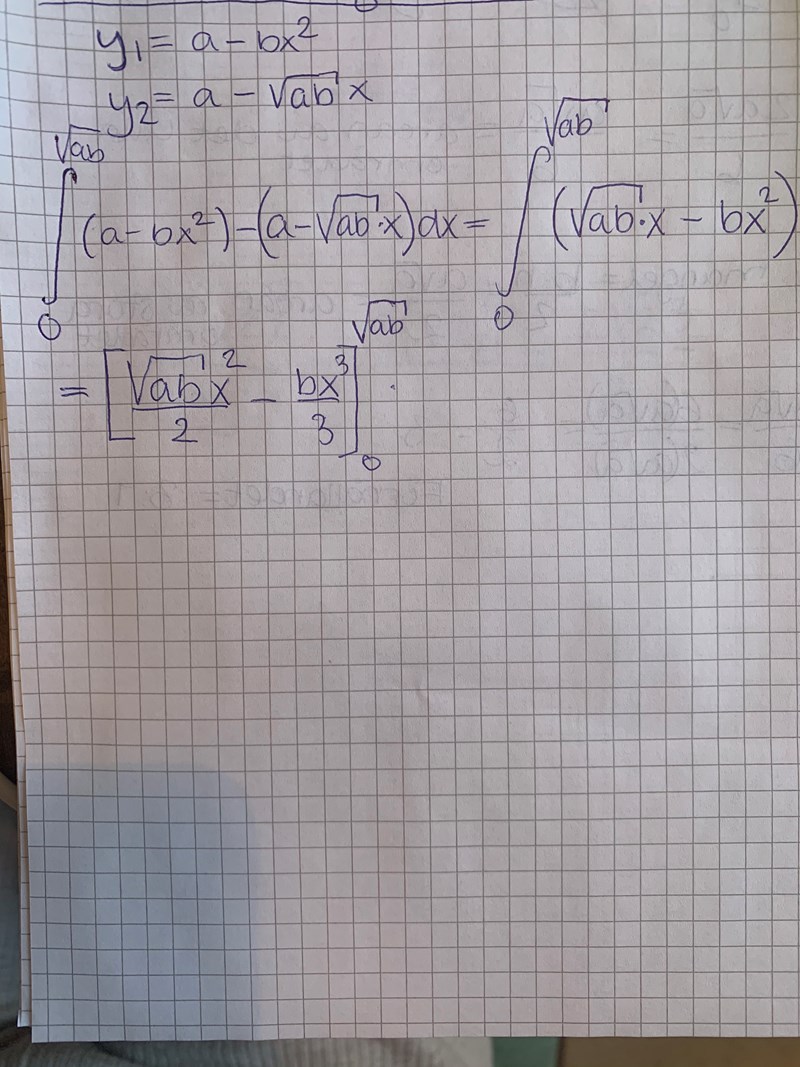 y₁ = a - bx²
y₂ = a - √ab x
∫₀^√ab (a - bx²) - (a - √ab · x) dx = ∫₀^√ab (√ab · x - bx²)
= [√ab x²/2 - bx³/3]₀^√ab